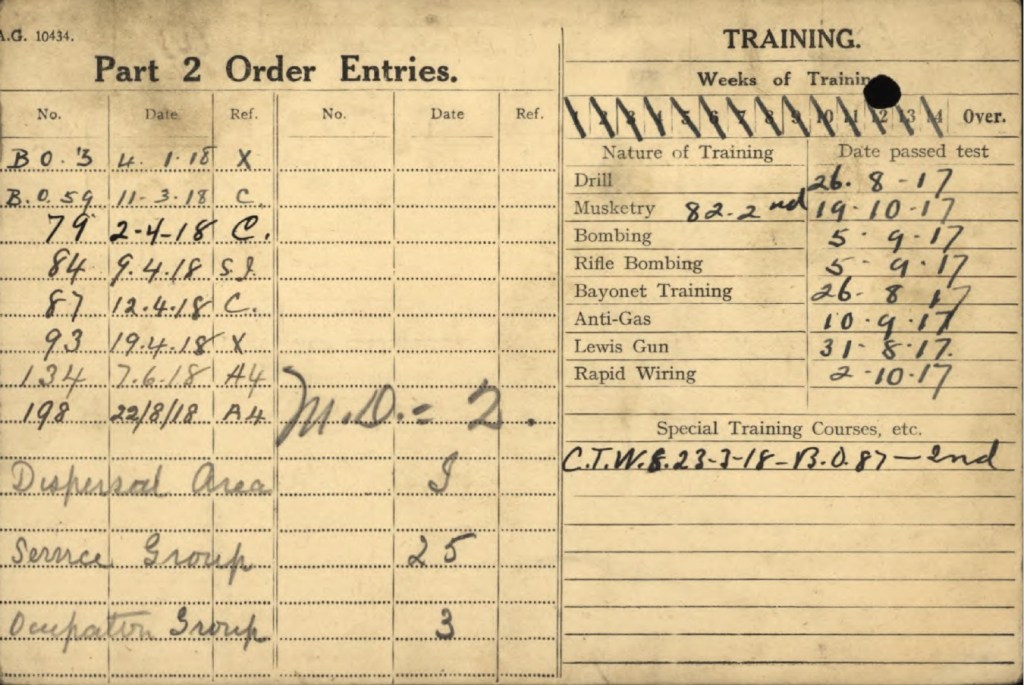 A.G. 10434.
Part 2 Order Entries.
No. Date Ref. No. Date Ref.
B O. 3 4. 1.18 X
B.O. 59 11-3.18 C.
79 2-4-18 C.
84 9.4.18 S.I.
87 12.4.18 C.
93 19.4.18 X
134 7.6.18 A4
198 22/8/18 A4
M.D. = 2.
Dispersal Area I
Service Group 25
Ocupation Group 3
TRAINING.
Weeks of Training
1 2 3 4 5 6 7 8 9 10 11 12 13 14 Over.
Nature of Training Date passed test
Drill 26. 8 - 17
Musketry 82.2nd 19-10-17
Bombing 5 . 9 . 17
Rifle Bombing 5 . 9 . 17
Bayonet Training 26. 8 . 17
Anti-Gas 10 . 9 . 17
Lewis Gun 31 - 8 . 17.
Rapid Wiring 2 -10-17
Special Training Courses, etc.
C.T.W.S. 23-3-18-B.O. 87-2nd